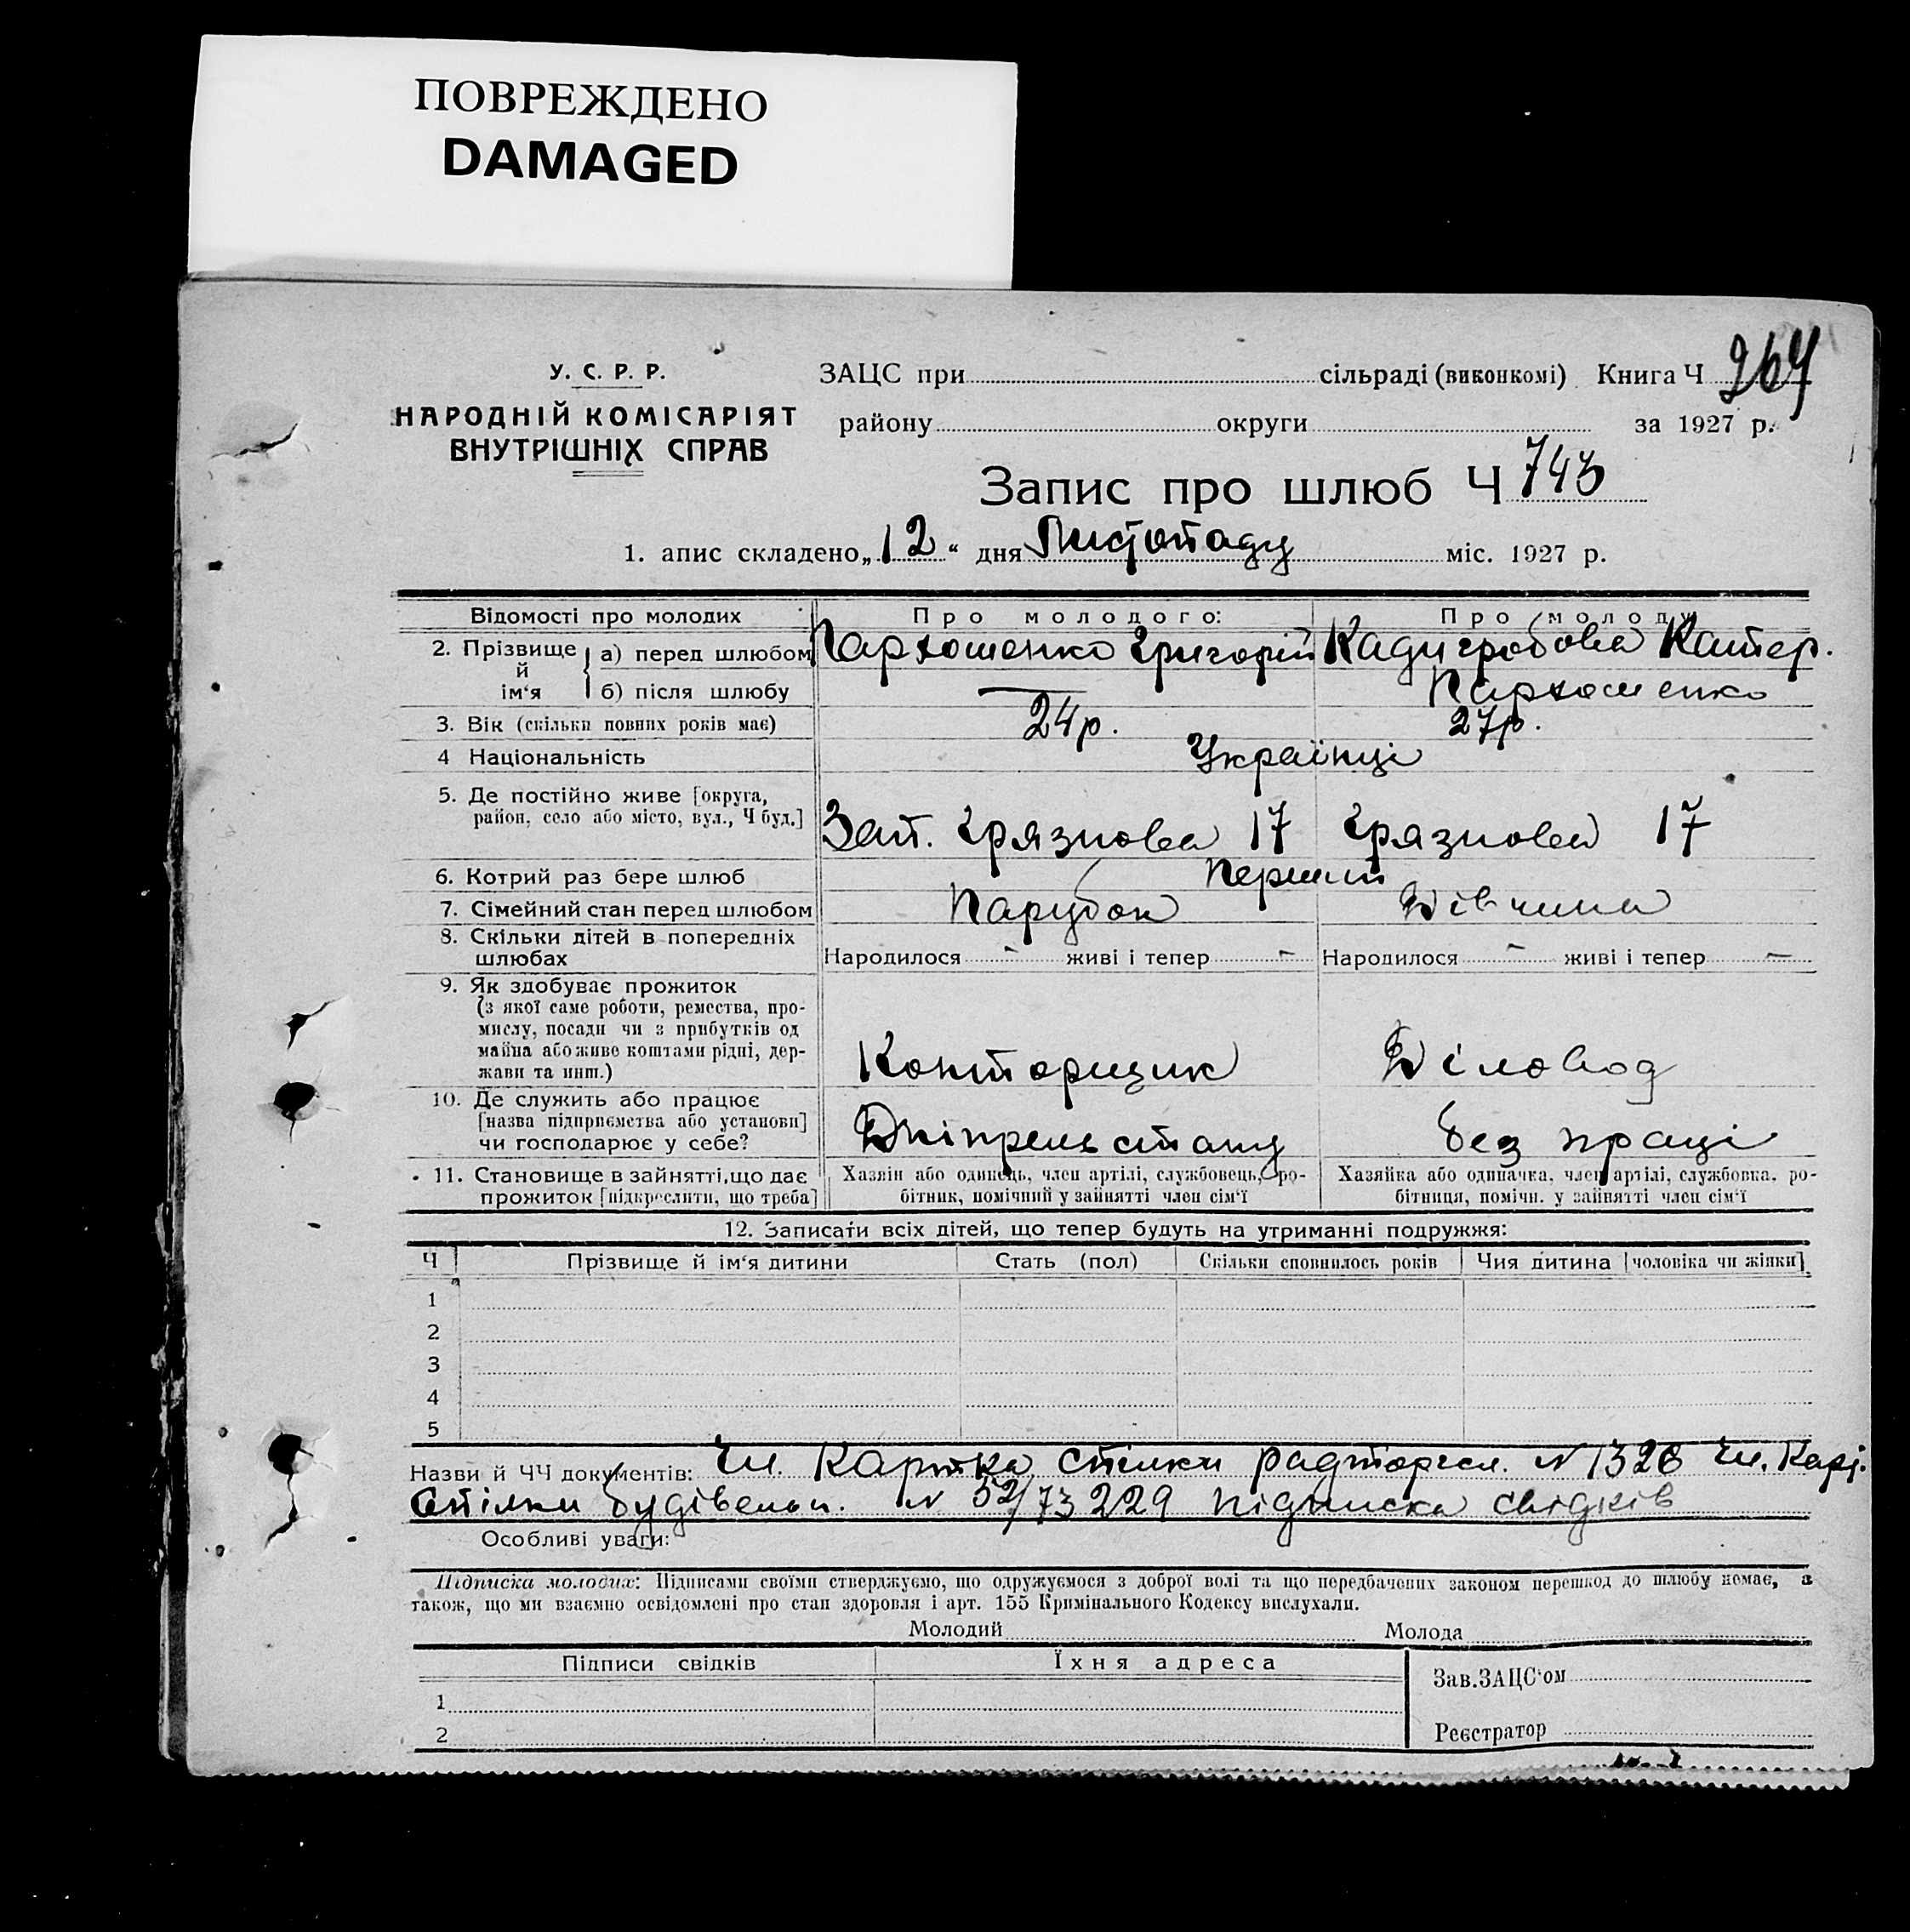 ПОВРЕЖДЕНО
DAMAGED
У. С. Р. Р.
НАРОДНІЙ КОМІСАРІЯТ
ВНУТРІШНІХ СПРАВ
ЗАЦС при сільраді (виконкомі) Книга Ч 264
району округи за 1927 р.
Запис про шлюб Ч 743
1. апис складено „12“ дня Листопаду міс. 1927 р.
Відомості про молодих Про молодого: Про молоду
2. Прізвище й ім‘я а) перед шлюбом Пархоменко Григорій Кадигробова Катер.
б) після шлюбу — Пархоменко
3. Вік (скільки повних років має) 24 р. 27 р.
4 Національність Українці
5. Де постійно живе [округа,
район, село або місто, вул., Ч буд.] Зап. Грязнова 17 Грязнова 17
6. Котрий раз бере шлюб Перший
7. Сімейний стан перед шлюбом Парубок Дівчина
8. Скільки дітей в попередніх
шлюбах Народилося - живі і тепер - Народилося - живі і тепер -
9. Як здобуває прожиток
(з якої саме роботи, ремества, про-
мислу, посади чи з прибутків од
майна або живе коштами рідні, дер-
жави та инш.) Конторщик Діловод
10. Де служить або працює
[назва підприємства або установи]
чи господарює у себе? Дніпрельстану без праці
11. Становище в зайнятті, що дає
прожиток [підкреслити, що треба]
Хазяїн або одинець, член артілі, службовець, ро-
бітник, помічний у зайнятті член сім‘ї
Хазяйка або одиначка, член артілі, службовка, ро-
бітниця, помічн. у зайнятті член сім‘ї
12. Записати всіх дітей, що тепер будуть на утриманні подружжя:
Ч Прізвище й ім‘я дитини Стать (пол) Скільки сповнилось років Чия дитина [чоловіка чи жінки]
1
2
3
4
5
Назви й ЧЧ документів: Чл. Картка Спілки радторгсл. N 1326 Чл. Кар.
Спілки будівельн. N 52/73229 підписка свідків
Особливі уваги:
Підписка молодих: Підписами своїми стверджуємо, що одружуємося з доброї волі та що передбачених законом перешкод до шлюбу немає, а
також, що ми взаємно освідомлені про стан здоровля і арт. 155 Кримінального Кодексу вислухали.
Молодий Молода
Підписи свідків Їхня адреса
Зав. ЗАЦС‘ом
1
2
Реєстратор